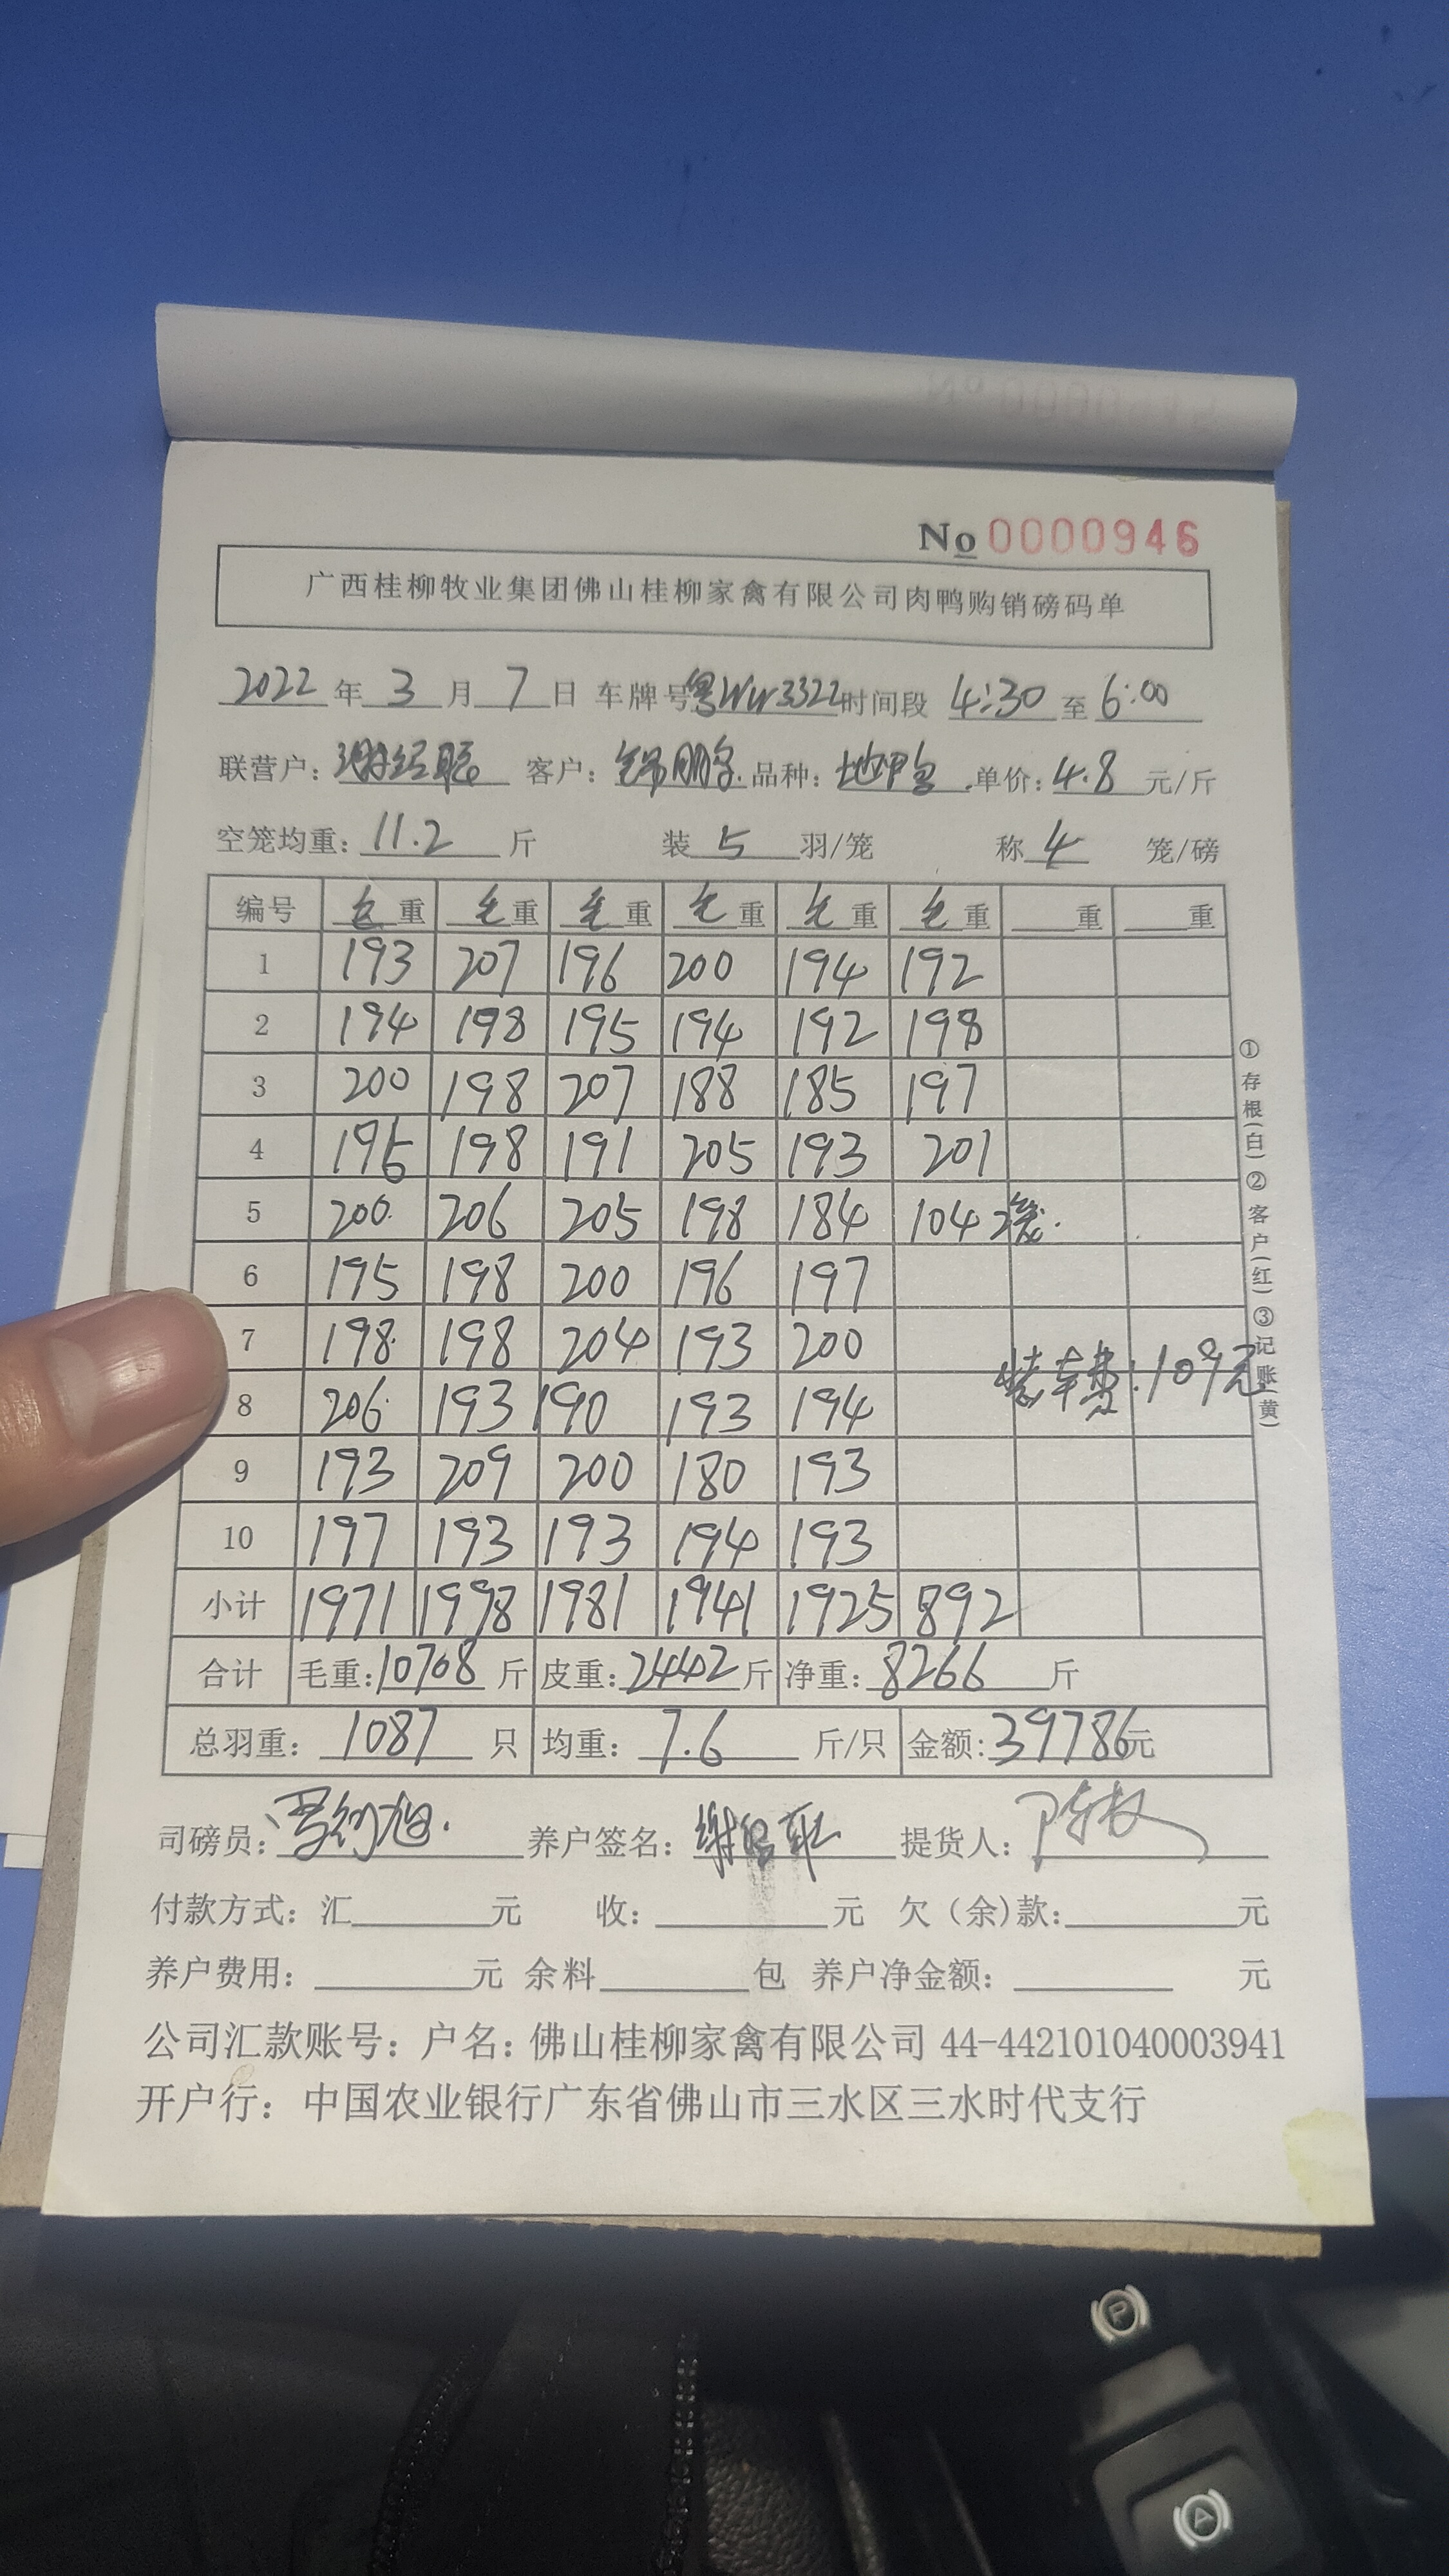 No 0000946
广西桂柳牧业集团佛山桂柳家禽有限公司肉鸭购销磅码单
2022 年 3 月 7 日 车牌号粤WW3322时间段 4:30 至 6:00
联营户: 客户: 品种: 单价: 4.8 元/斤
空笼均重: 11.2 斤 装 5 羽/笼 称 4 笼/磅
编号 毛重 毛重 毛重 毛重 毛重 毛重 重 重
1 193 207 196 200 194 192
2 194 198 195 194 192 198
3 200 198 207 188 185 197
4 195 198 191 205 193 201
5 200 206 205 198 184 104 2笼.
6 195 198 200 196 197
7 198 198 204 193 200
装车费:109元
8 206 193 190 193 194
9 193 209 200 180 193
10 197 193 193 194 193
小计 1971 1998 1981 1941 1925 892
合计 毛重:10708 斤 皮重:2442斤 净重: 8266 斤
总羽重: 1087 只 均重: 7.6 斤/只 金额:39786元
司磅员: 养户签名: 提货人:
付款方式: 汇 元 收: 元 欠(余)款: 元
养户费用: 元 余料 包 养户净金额: 元
公司汇款账号: 户名: 佛山桂柳家禽有限公司 44-442101040003941
开户行: 中国农业银行广东省佛山市三水区三水时代支行
①存根(白)②客户(红)③记账(黄)
P
A